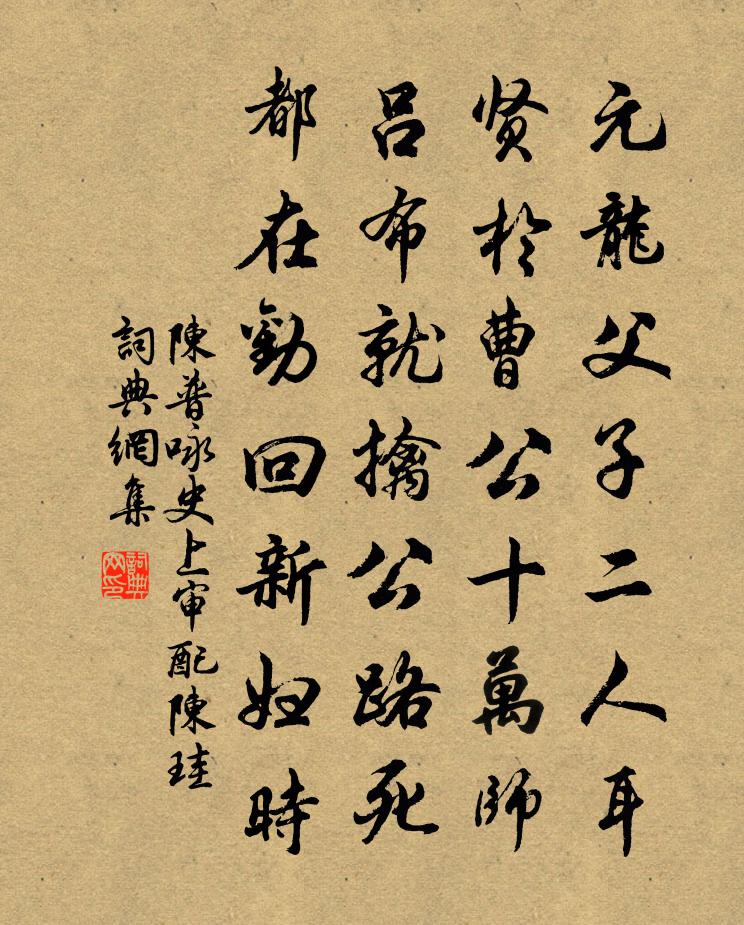 元龍父子二人耳
贤於曹公十萬師
吕布就擒公路死
都在勸回新妇時
陳普咏史上审配陳珪
詞典網集
詞典网印